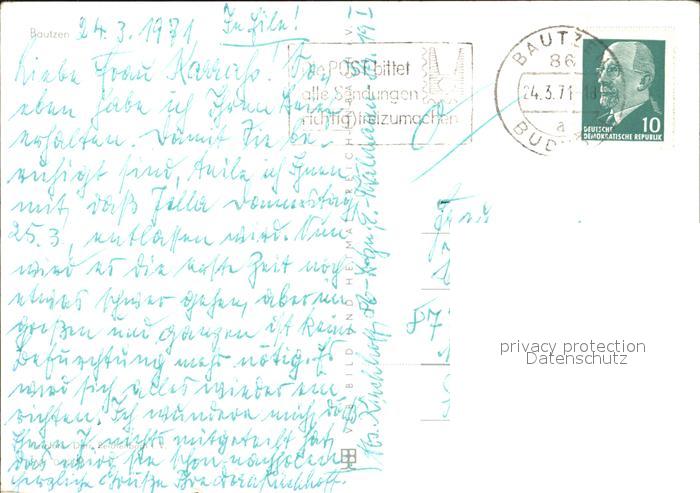 Bautzen 24.3.1971 In Eile!
Liebe Frau
eben habe ich Ihren
erhalten. Damit Sie be-
ruhigt sind, teile ich Ihnen
mit, daß Jella Donnerstag
25.3. entlassen wird. Nun
wird es die erste Zeit noch
etwas schwer gehen, aber im
großen und ganzen ist keine
Befürchtung mehr nötig. Es
wird sich alles wieder ein-
richten. Ich wundere mich, daß
Ihnen J. nichts mitgeteilt hat,
das wird sie schon nachholen.
Herzliche Grüße Kirchhoff.
Die POST bittet
alle Sendungen
richtig freizumachen
BAUTZEN
86
24.3.71-18
a
DEUTSCHE 10
DEMOKRATISCHE REPUBLIK
Frau
VERLAG BILD UND HEIMAT REICHENBACH I. V.
privacy protection
Datenschutz